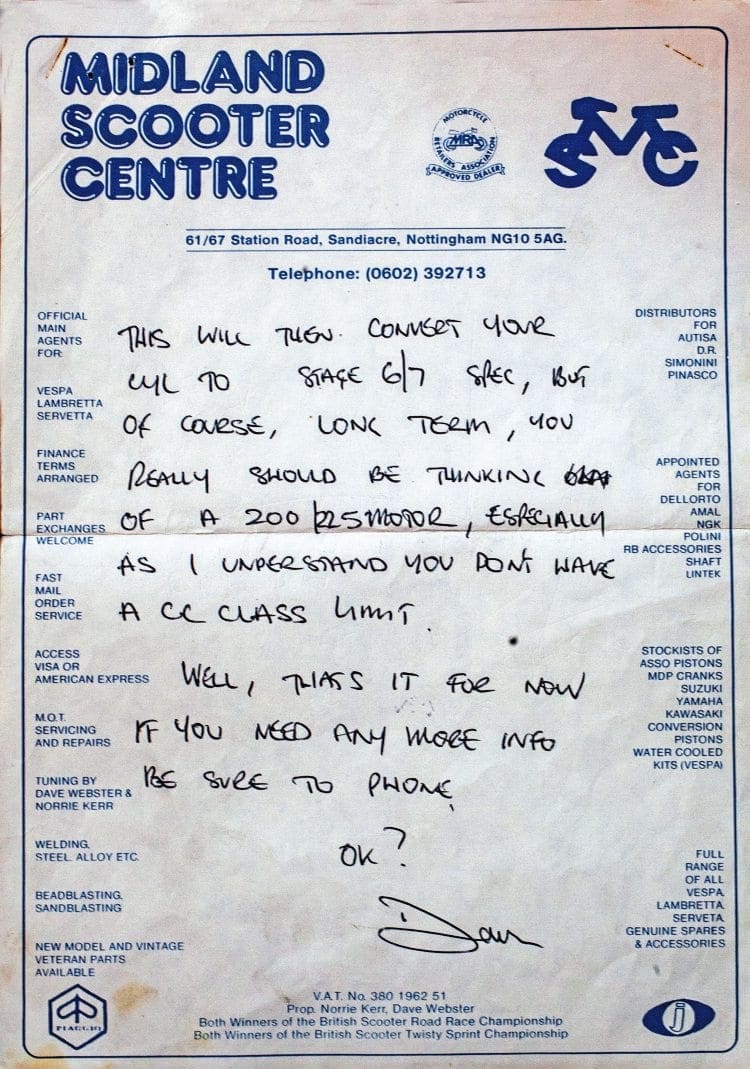 MIDLAND
SCOOTER
CENTRE
MOTORCYCLE
MRA
RETAILERS ASSOCIATION
APPROVED DEALER
SMC
61/67 Station Road, Sandiacre, Nottingham NG10 5AG.
Telephone: (0602) 392713
OFFICIAL
MAIN
AGENTS
FOR:
VESPA
LAMBRETTA
SERVETTA
FINANCE
TERMS
ARRANGED
PART
EXCHANGES
WELCOME
FAST
MAIL
ORDER
SERVICE
ACCESS
VISA OR
AMERICAN EXPRESS
M.O.T.
SERVICING
AND REPAIRS
TUNING BY
DAVE WEBSTER &
NORRIE KERR
WELDING,
STEEL, ALLOY ETC.
BEADBLASTING,
SANDBLASTING
NEW MODEL AND VINTAGE
VETERAN PARTS
AVAILABLE
THIS WILL THEN CONVERT YOUR
CYL TO STAGE 6/7 SPEC, BUT
OF COURSE, LONG TERM, YOU
REALLY SHOULD BE THINKING
OF A 200/225 MOTOR, ESPECIALLY
AS I UNDERSTAND YOU DONT HAVE
A CC CLASS LIMIT.
WELL, THATS IT FOR NOW
IF YOU NEED ANY MORE INFO
BE SURE TO PHONE,
OK?
Dave
DISTRIBUTORS
FOR
AUTISA
D.R.
SIMONINI
PINASCO
APPOINTED
AGENTS
FOR
DELLORTO
AMAL
NGK
POLINI
RB ACCESSORIES
SHAFT
LINTEK
STOCKISTS OF
ASSO PISTONS
MDP CRANKS
SUZUKI
YAMAHA
KAWASAKI
CONVERSION
PISTONS
WATER COOLED
KITS (VESPA)
FULL
RANGE
OF ALL
VESPA,
LAMBRETTA,
SERVETA
GENUINE SPARES
& ACCESSORIES
PIAGGIO
V.A.T. No. 380 1962 51
Prop. Norrie Kerr, Dave Webster
Both Winners of the British Scooter Road Race Championship
Both Winners of the British Scooter Twisty Sprint Championship